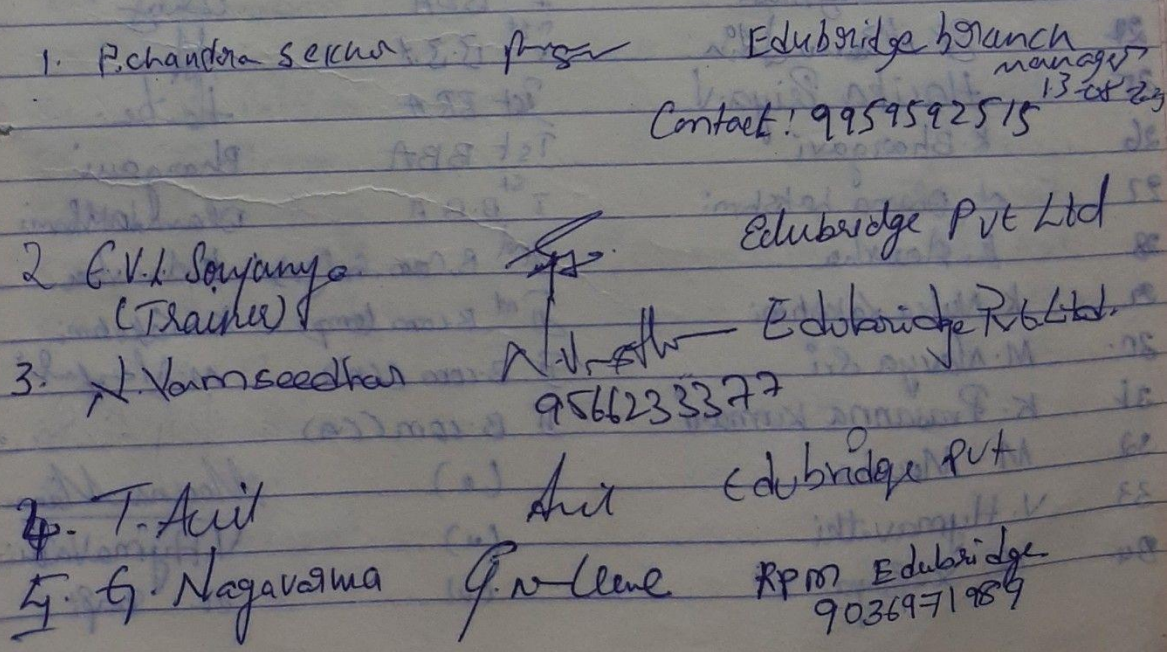 1. P.chandra sekhar Edubridge branch
manager
13-08-23
Contact: 9959592515
2 E.V.L. Sowjanya Edubridge Pvt Ltd
(Trainer)
3. N. Vamseedhar Edubridge Pvt Ltd.
9566233377
4. T. Anil Anil Edubridge Pvt
5. G. Nagavarma Rpm Edubridge
9036971989